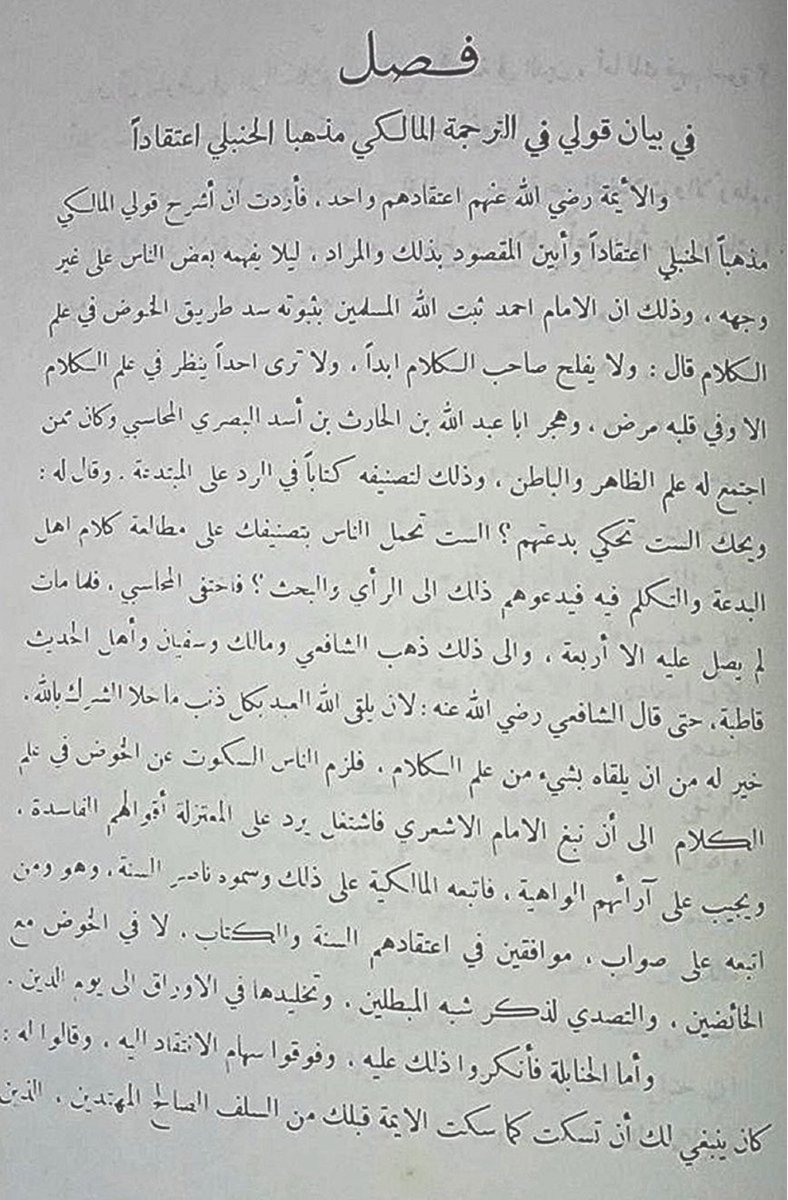 فـصل
في بيان قولي في الترجمة المالكي مذهبا الحنبلي اعتقاداً
والأيمة رضي الله عنهم اعتقادهم واحد ، فأردت ان أشرح قولي المالكي
مذهباً الحنبلي اعتقاداً وأبين المقصود بذلك والمراد ، ليلا يفهمه بعض الناس على غير
وجهه ، وذلك ان الامام احمد ثبت الله المسلمين بثبوته سد طريق الخوض في علم
الكلام قال : ولا يفلح صاحب الكلام ابداً ، ولا ترى احداً ينظر في علم الكلام
الا وفي قلبه مرض ، وهجر ابا عبد الله بن الحارث بن أسد البصري المحاسبي وكان ممن
اجتمع له علم الظاهر والباطن ، وذلك لتصنيفه كتاباً في الرد على المبتدعة . وقال له :
ويحك الست تحكي بدعتهم ؟ الست تحمل الناس بتصنيفك على مطالعة كلام اهل
البدعة والتكلم فيه فيدعوهم ذلك الى الرأي والبحث ؟ فاختفى المحاسبي ، فلما مات
لم يصل عليه الا أربعة ، والى ذلك ذهب الشافعي ومالك وسفيان وأهل الحديث
قاطبة ، حتى قال الشافعي رضي الله عنه : لان يلقى الله العبد بكل ذنب ما خلا الشرك بالله ،
خير له من ان يلقاه بشيء من علم الكلام ، فلزم الناس السكوت عن الخوض في علم
الكلام الى أن نبغ الامام الاشعري فاشتغل يرد على المعتزلة أقوالهم الفاسدة ،
ويجيب على آرائهم الواهية ، فاتبعه المالكية على ذلك وسموه ناصر السنة ، وهو ومن
اتبعه على صواب ، موافقين في اعتقادهم السنة والكتاب ، لا في الخوض مع
الخائضين ، والتصدي لذكر شبه المبطلين ، وتخليدها في الاوراق الى يوم الدين .
وأما الحنابلة فأنكروا ذلك عليه ، وفوقوا سهام الانتقاد اليه ، وقالوا له :
كان ينبغي لك أن تسكت كما سكت الايمة قبلك من السلف الصالح المهتدين ، الذين